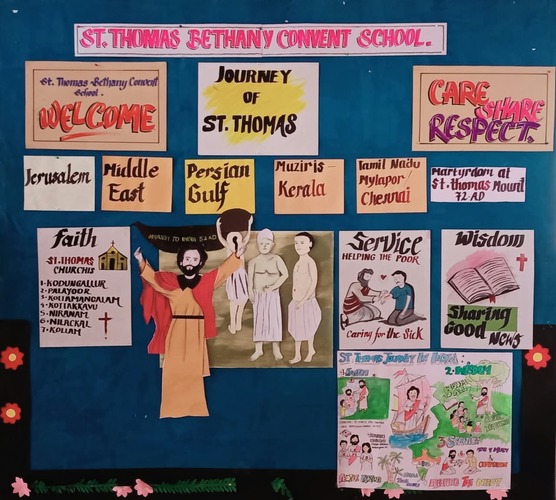 ST. THOMAS BETHANY CONVENT SCHOOL.
St. Thomas Bethany Convent
School.
WELCOME
JOURNEY
OF
ST. THOMAS
CARE
SHARE
RESPECT.
Jerusalem
Middle
East
Persian
Gulf
Muziris-
Kerala
Tamil Nadu
Mylapor/
Chennai
Martyrdom at
St. thomas Mount
72 AD
faith
ST. THOMAS
CHURCHS
1-KODUNGALLUR
2-PALAYOOR
3-KOTTAMANGALAM
4-KOTTAKKAVU
5-NIRANAM
6-NILACKAL
7-KOLLAM
TO INDIA 52 AD
Service
HELPING THE POOR
Caring for the Sick
Wisdom
Sharing
Good
News
ST THOMAS JOURNEY
2-WISDOM